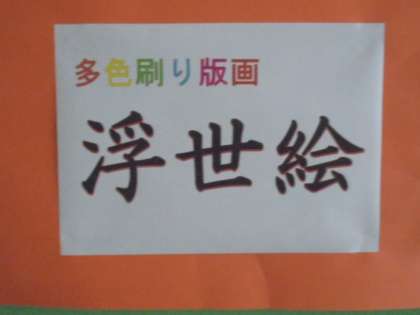 多色刷り版画
浮世絵